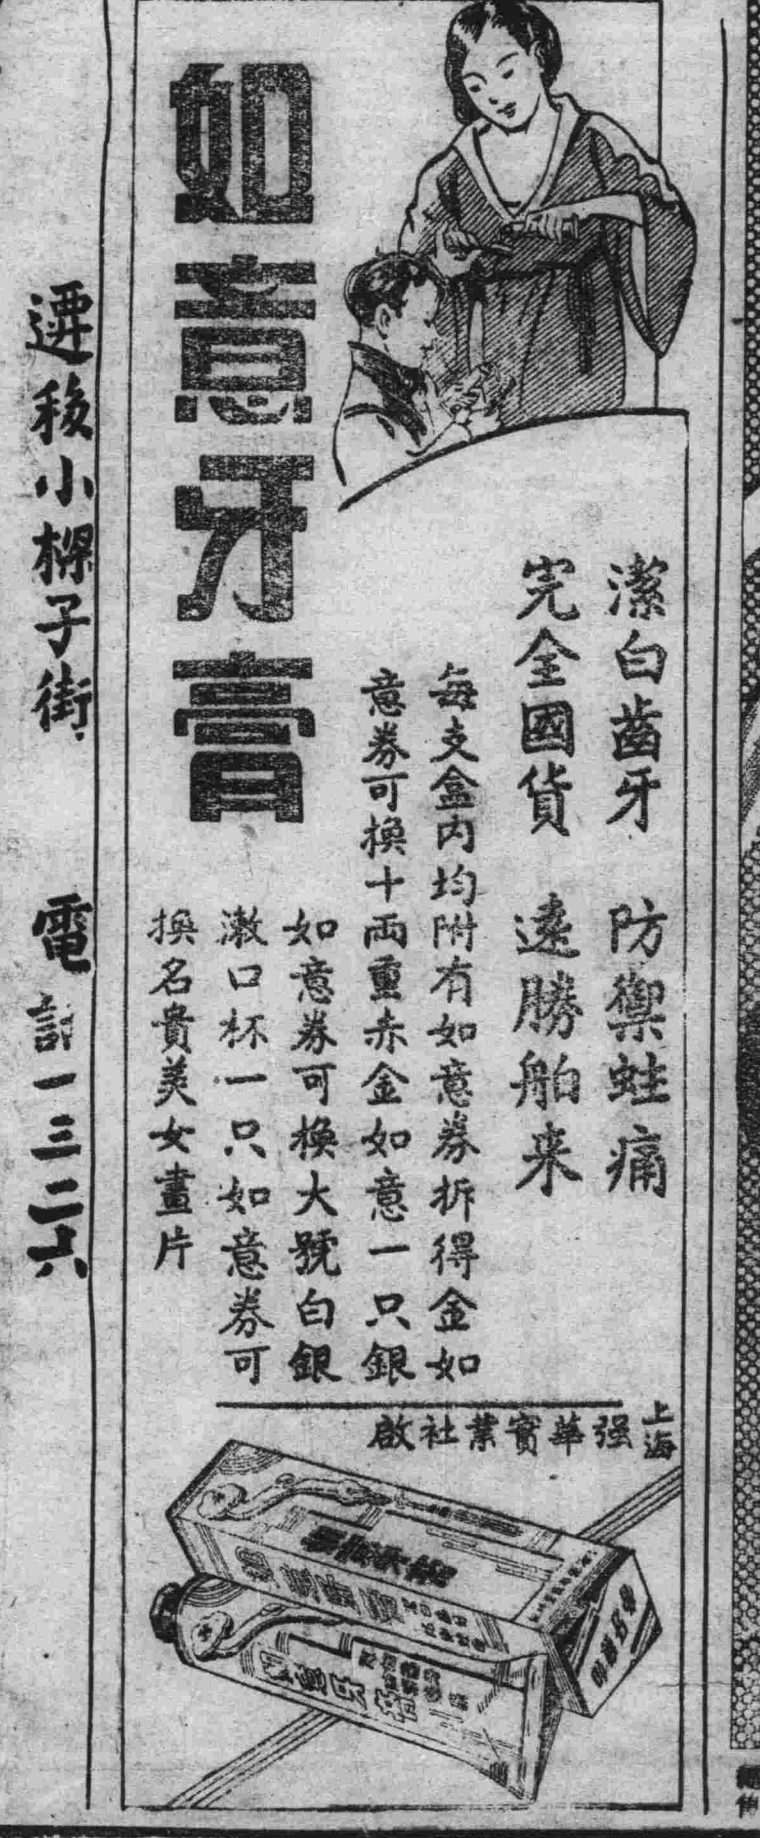 潔白齒牙　防禦蛀痛
完全國貨　遠勝舶来
每支盒内均附有如意券拆得金如
意券可換十兩重赤金如意一只銀
如意券可換大號白銀
漱口杯一只如意券可
換名貴美女畫片
如意牙膏
上海强華實業社啟
遷移小樑子街
電話一三二六